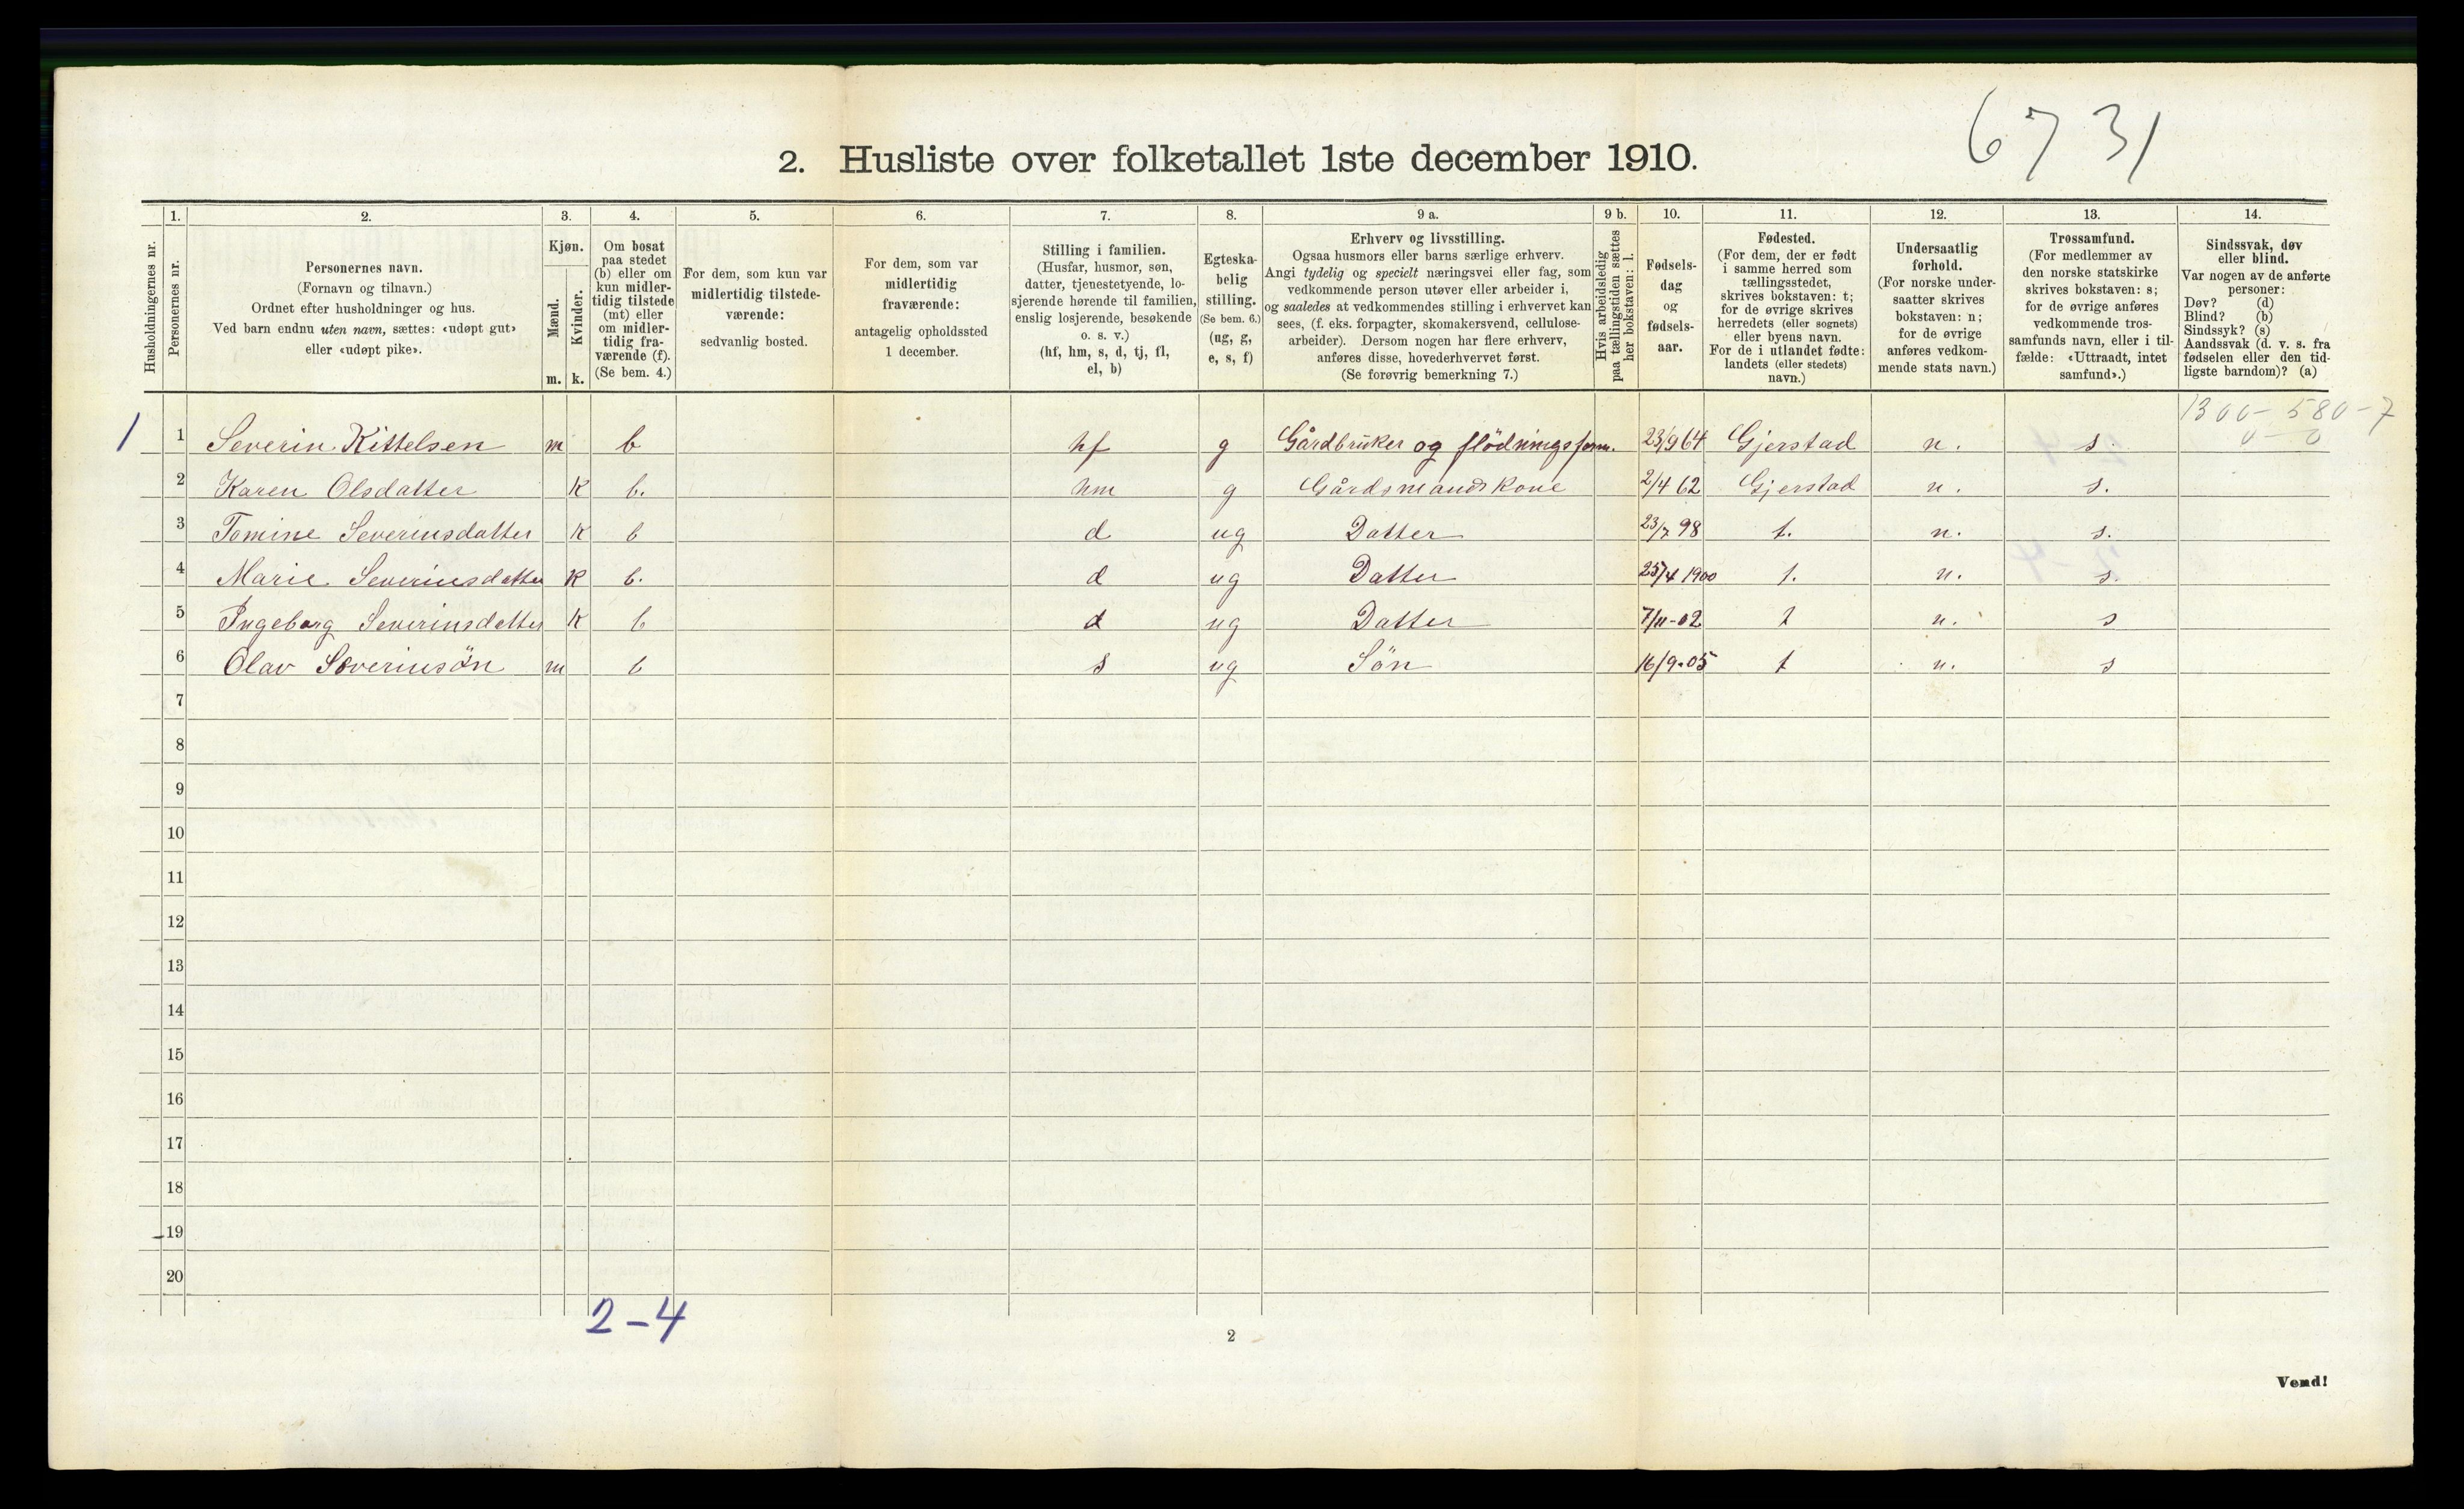 6731
2. Husliste over folketallet 1ste december 1910.
1. 2. 3. 4. 5. 6. 7. 8. 9 a. 9 b. 10. 11. 12. 13. 14.
Husholdningernes nr.
Personernes nr.
Personernes navn.
(Fornavn og tilnavn.)
Ordnet efter husholdninger og hus.
Ved barn endnu uten navn, sættes: «udøpt gut»
eller «udøpt pike».
Kjøn.
Mænd.
Kvinder.
m. k.
Om bosat
paa stedet
(b) eller om
kun midler-
tidig tilstede
(mt) eller
om midler-
tidig fra-
værende (f).
(Se bem. 4.)
For dem, som kun var
midlertidig tilstede-
værende:
sedvanlig bosted.
For dem, som var
midlertidig
fraværende:
antagelig opholdssted
1 december.
Stilling i familien.
(Husfar, husmor, søn,
datter, tjenestetyende, lo-
sjerende hørende til familien,
enslig losjerende, besøkende
o. s. v.)
(hf, hm, s, d, tj, fl,
el, b)
Egteska-
belig
stilling.
(Se bem. 6.)
(ug, g,
e, s, f)
Erhverv og livsstilling.
Ogsaa husmors eller barns særlige erhverv.
Angi tydelig og specielt næringsvei eller fag, som
vedkommende person utøver eller arbeider i,
og saaledes at vedkommendes stilling i erhvervet kan
sees, (f. eks. forpagter, skomakersvend, cellulose-
arbeider). Dersom nogen har flere erhverv,
anføres disse, hovederhvervet først.
(Se forøvrig bemerkning 7.)
Hvis arbeidsledig
paa tællingstiden sættes
her bokstaven: l.
Fødsels-
dag
og
fødsels-
aar.
Fødested.
(For dem, der er født
i samme herred som
tællingsstedet,
skrives bokstaven: t;
for de øvrige skrives
herredets (eller sognets)
eller byens navn.
For de i utlandet fødte:
landets (eller stedets)
navn.)
Undersaatlig
forhold.
(For norske under-
saatter skrives
bokstaven: n;
for de øvrige
anføres vedkom-
mende stats navn.)
Trossamfund.
(For medlemmer av
den norske statskirke
skrives bokstaven: s;
for de øvrige anføres
vedkommende tros-
samfunds navn, eller i til-
fælde: «Uttraadt, intet
samfund».)
Sindssvak, døv
eller blind.
Var nogen av de anførte
personer:
Døv? (d)
Blind? (b)
Sindssyk? (s)
Aandssvak (d. v. s. fra
fødselen eller den tid-
ligste barndom)? (a)
1300-580-7
0-0
1 1 Severin Kittelsen m b hf g Gårdbruker og flödningsform. 23/9 64 Gjerstad n. s.
2 Karen Olsdatter K b. hm g Gårdsmandskone 2/4 62 Gjerstad n. s.
3 Tomine Severinsdatter K b d ug Datter 23/7 98 t. n. s.
4 Marie Severinsdatter K b. d ug Datter 25/4 1900 t. n. s.
5 Ingeborg Severinsdatter K b d ug Datter 7/11-02 t n. s
6 Olav Severinsön m b s ug Sön 16/9-05 t n. s
7
8
9
10
11
12
13
14
15
16
17
18
19
20
2-4
2
Vend!